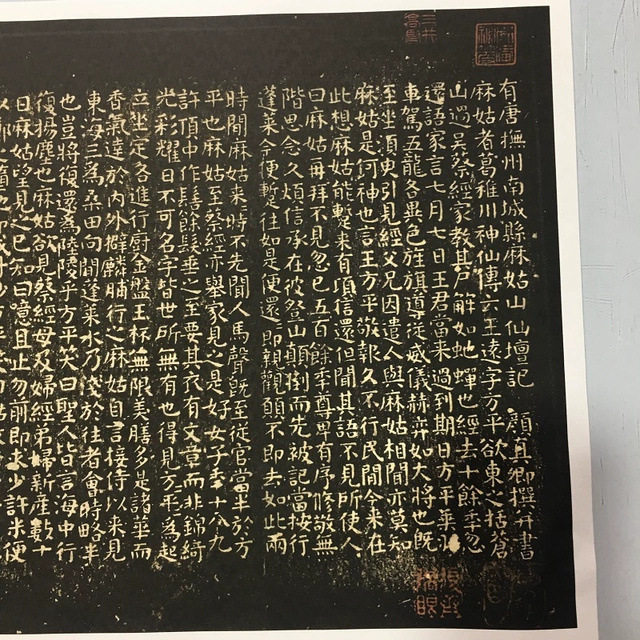 有唐撫州南城縣麻姑山仙壇記 顏真卿撰并書
麻姑者葛稚川神仙傳云王遠字方平欲東之括蒼
山過吳蔡經家教其尸解如虵蟬也經去十餘季忽
還語家言七月七日王君當來過到期日方平乘羽
車駕五龍各異色旌旗導從威儀赫弈如大將也既
至坐須臾引見經父兄因遣人與麻姑相聞亦莫知
麻姑是何神也言王方平敬報久不行民間今來在
此想麻姑能暫來有頃信還但聞其語不見所使人
曰麻姑再拜不見忽已五百餘季尊卑有序修敬無
階思念久煩信承在彼登山顛倒而先被記當按行
蓬萊今便暫往如是便還即親觀願不即去如此兩
時間麻姑來時不先聞人馬聲既至從官當半於方
平也麻姑至蔡經亦舉家見之是好女子季十八九
許頂中作髻餘髮垂之至要其衣有文章而非錦綺
光彩耀日不可名字皆世所無有也得見方平為起
立坐定各進行廚金盤玉杯無限美膳多是諸華而
香氣達於內外擗麟脯行之麻姑自言接侍以來見
東海三為桑田向間蓬萊水乃淺於往者會時略半
也豈將復還為陸陵乎方平笑曰聖人皆言海中行
復揚塵也麻姑欲見蔡經母及婦經弟婦新產數十
日麻姑望見之已知曰噫且止勿前即求少許米便